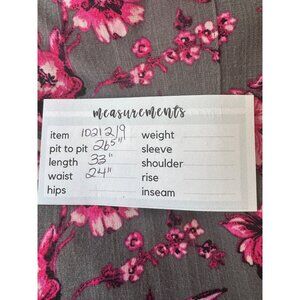 measurements
item 1021219 weight
pit to pit 26.5" sleeve
length 33" shoulder
waist 24" rise
hips inseam